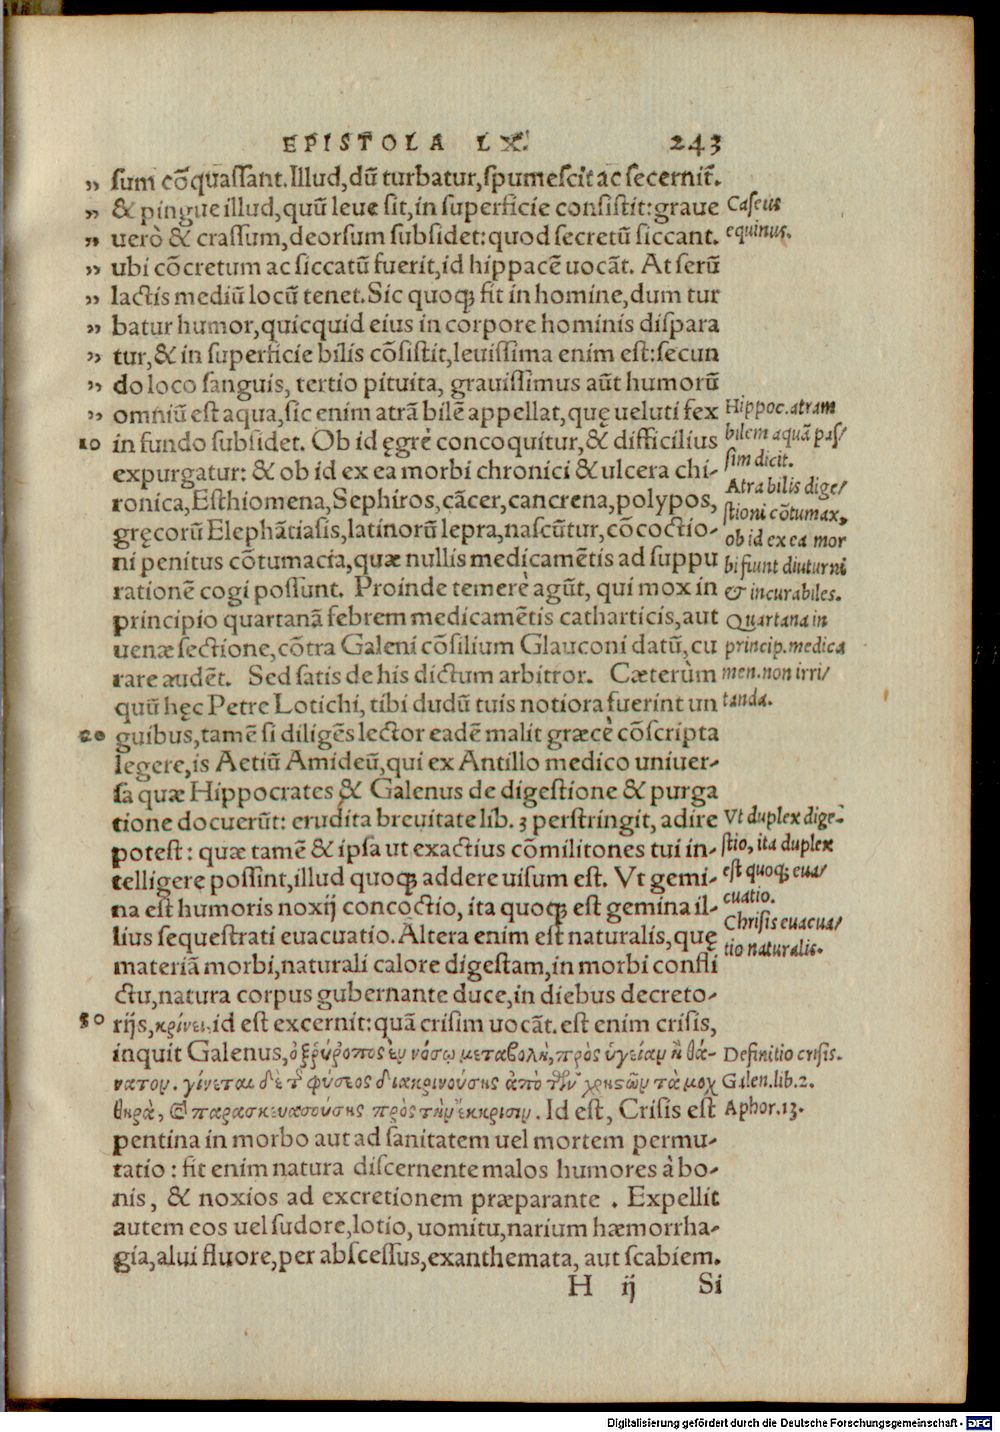 EPISTOLA LX. 243
„ sum cõquassant. Illud, dũ turbatur, spumescit ac secernit̃.
„ & pingue illud, quũ leue sit, in superficie consistit: graue
„ uerò & crassum, deorsum subsidet: quod secretũ siccant.
„ ubi cõcretum ac siccatũ fuerit, id hippacẽ uocãt. At serũ
„ lactis mediũ locũ tenet. Sic quoqꝫ fit in homine, dum tur
„ batur humor, quicquid eius in corpore hominis dispara
„ tur, & in superficie bilis cõsistit, leuissima enim est: secun
„ do loco sanguis, tertio pituita, grauissimus aũt humorũ
„ omniũ est aqua, sic enim atrã bilẽ appellat, quę ueluti fex
10 in fundo subsidet. Ob id ęgrè concoquitur, & difficilius
expurgatur: & ob id ex ea morbi chronici & ulcera chi-
ronica, Esthiomena, Sephiros, cãcer, cancrena, polypos,
gręcorũ Elephãtiasis, latinorũ lepra, nascũtur, cõcoctio-
ni penitus cõtumacia, quæ nullis medicamẽtis ad suppu
rationẽ cogi possunt. Proinde temerè agũt, qui mox in
principio quartanã febrem medicamẽtis catharticis, aut
uenæ sectione, cõtra Galeni cõsilium Glauconi datũ, cu
rare audẽt. Sed satis de his dictum arbitror. Cæterùm
quũ hęc Petre Lotichi, tibi dudũ tuis notiora fuerint un
20 guibus, tamẽ si diligẽs lector eadẽ malit græcè cõscripta
legere, is Aetiũ Amideũ, qui ex Antillo medico uniuer-
sa quæ Hippocrates & Galenus de digestione & purga
tione docuerũt: erudita breuitate lib. 3 perstringit, adire
potest: quæ tamẽ & ipsa ut exactius cõmilitones tui in-
telligere possint, illud quoqꝫ addere uisum est. Vt gemi-
na est humoris noxij concoctio, ita quoqꝫ est gemina il-
lius sequestrati euacuatio. Altera enim est naturalis, quę
materiã morbi, naturali calore digestam, in morbi confli
ctu, natura corpus gubernante duce, in diebus decreto-
30 rijs, κρίνει, id est excernit: quã crisim uocãt. est enim crisis,
inquit Galenus, ὀξύῤῥοπος ἐν νόσῳ μεταβολὴ, πρὸς ὑγείαν ἢ θά-
νατον. γίνεται δὲ τ̃ φύσεος διακρινούσης ἀπὸ τῶν χρηστῶν τὰ μοχ
θηρὰ, καὶ παρασκευασούσης πρὸς τὴν ἔκκρισιν. Id est, Crisis est
pentina in morbo aut ad sanitatem uel mortem permu-
tatio: fit enim natura discernente malos humores à bo-
nis, & noxios ad excretionem præparante. Expellit
autem eos uel sudore, lotio, uomitu, narium hæmorrha-
gia, alui fluore, per abscessus, exanthemata, aut scabiem.
H ij Si
Caseus
equinus.
Hippoc. atram
bilem aquã pas/
sim dicit.
Atra bilis dige/
stioni cõtumax,
ob id ex ea mor
bi fiunt diuturni
& incurabiles.
Quartana in
princip. medica
men. non irri/
tanda.
Vt duplex dige-
stio, ita duplex
est quoqꝫ eua/
cuatio.
Chrisis euacua/
tio naturalis.
Definitio crisis.
Galen. lib. 2.
Aphor. 13.
Digitalisierung gefördert durch die Deutsche Forschungsgemeinschaft - DFG